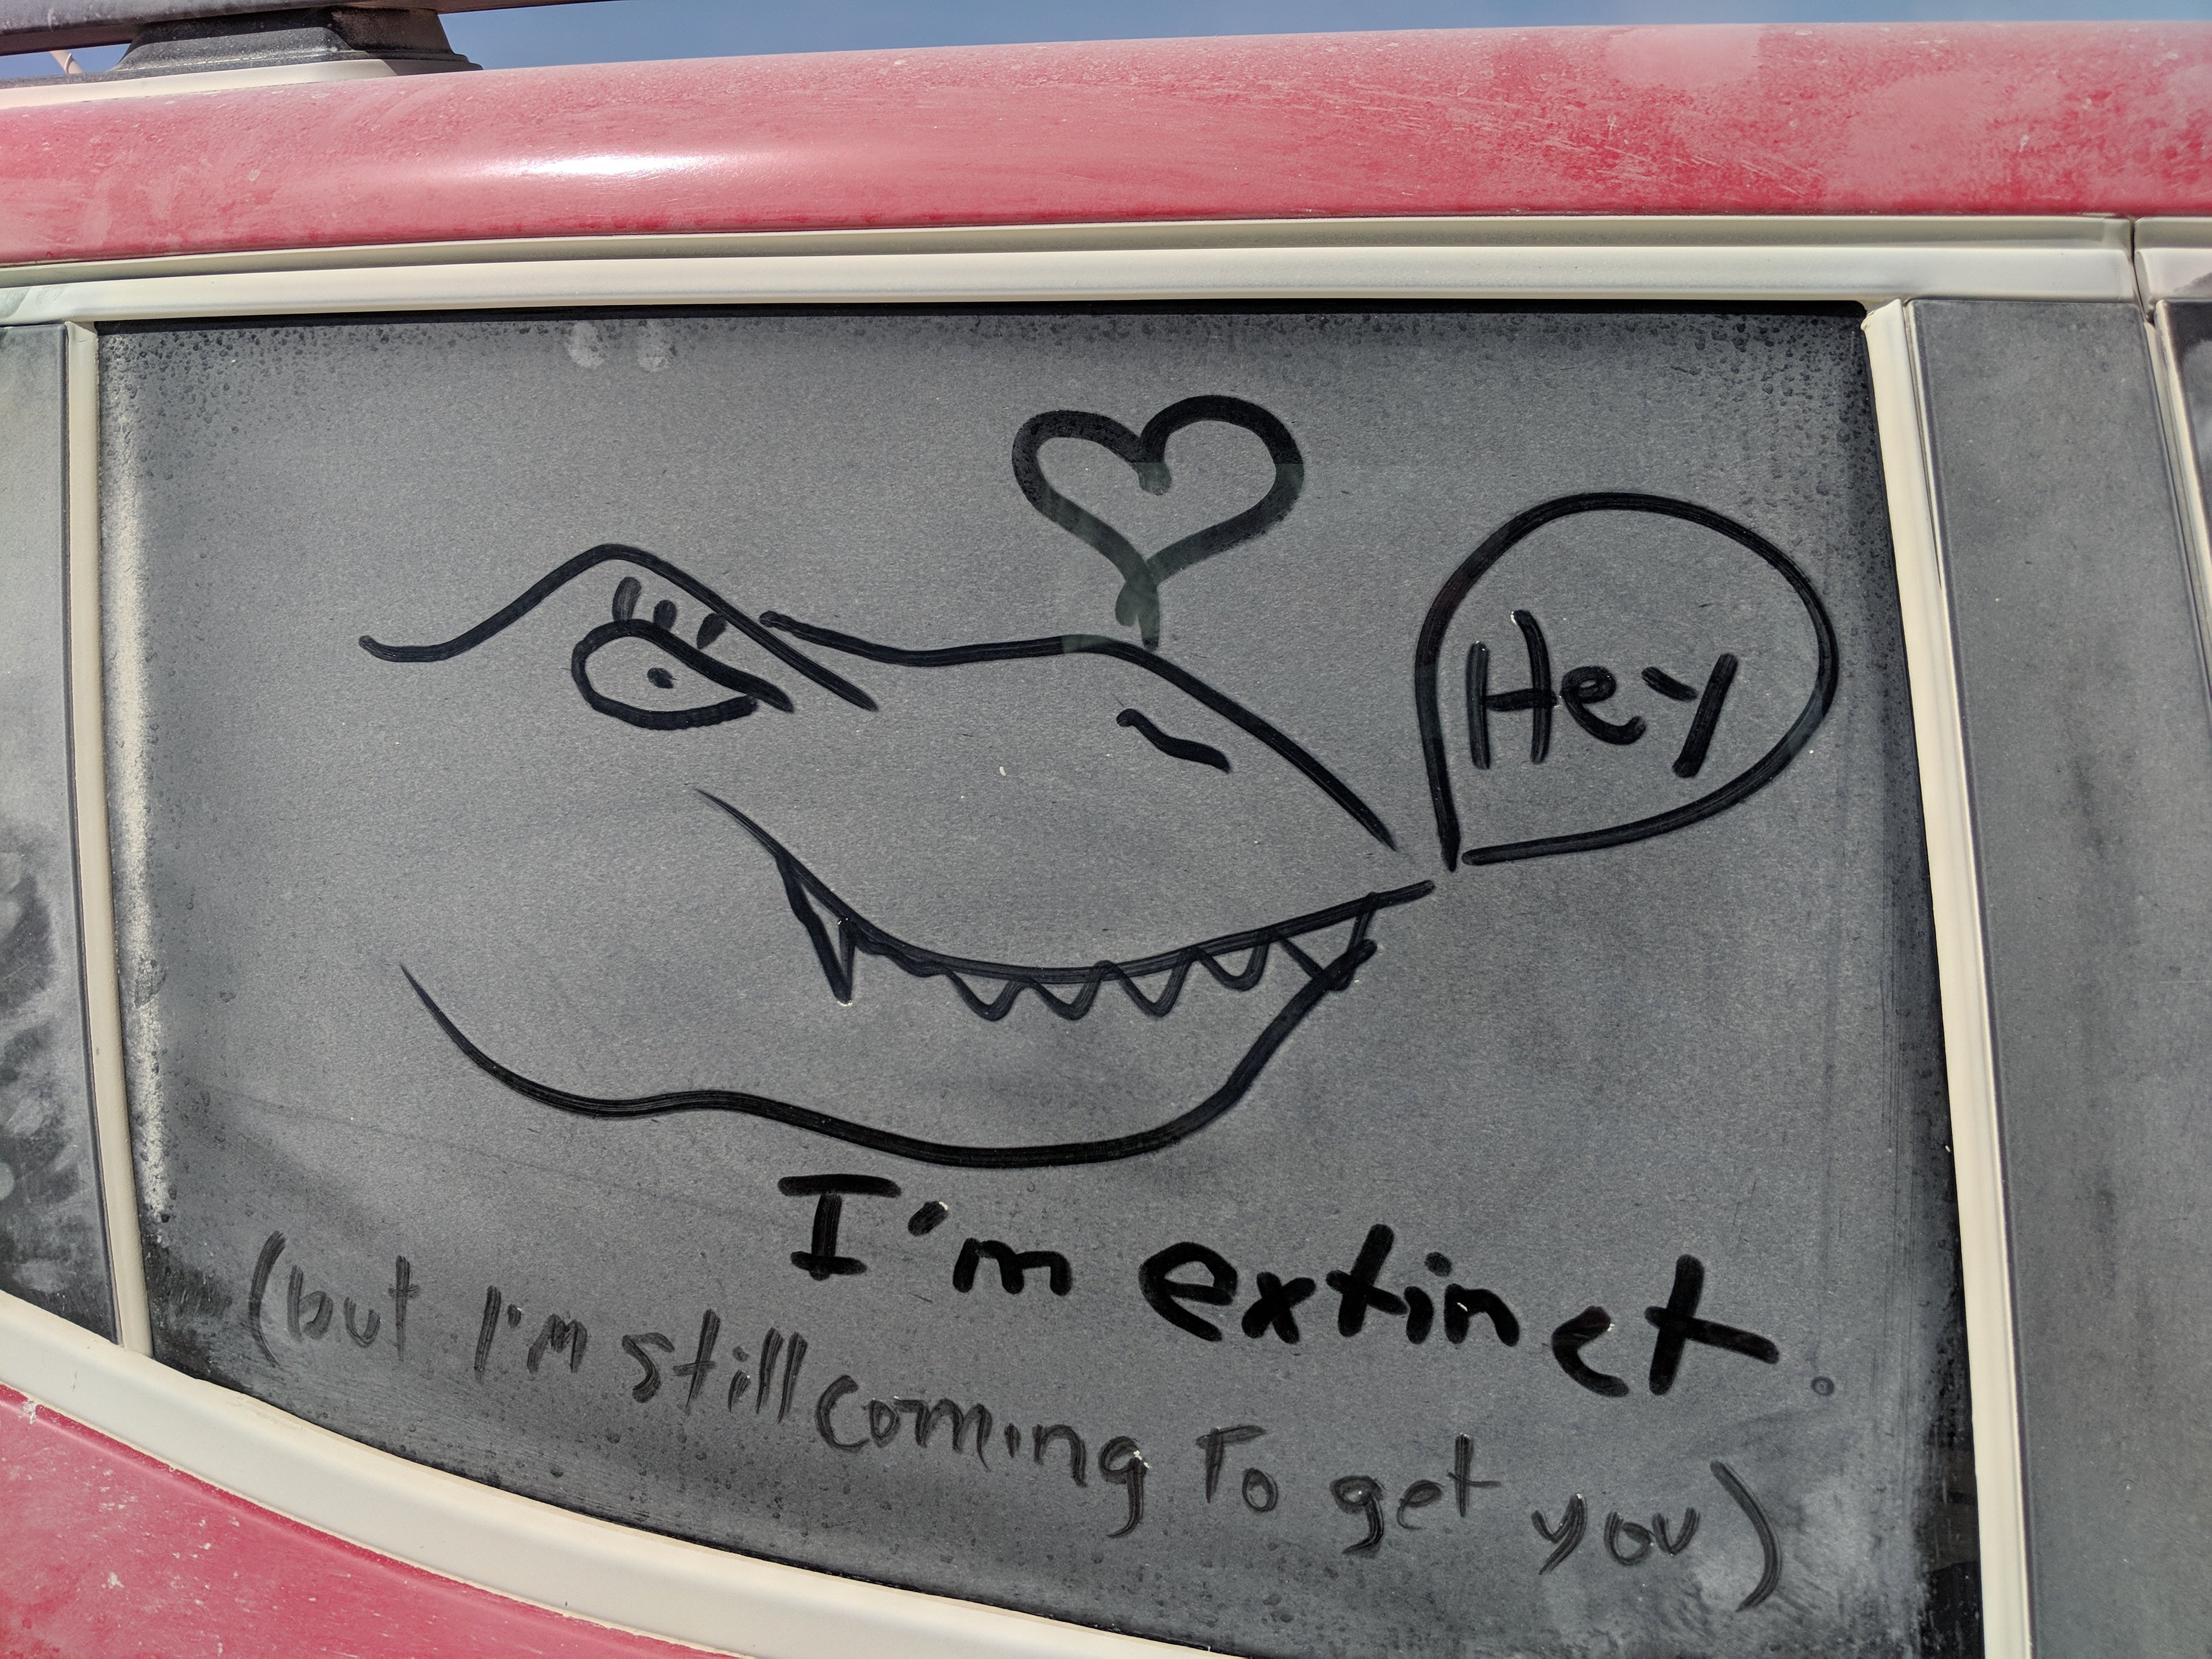 Hey
I'm extinct.
(but I'm still coming To get you)